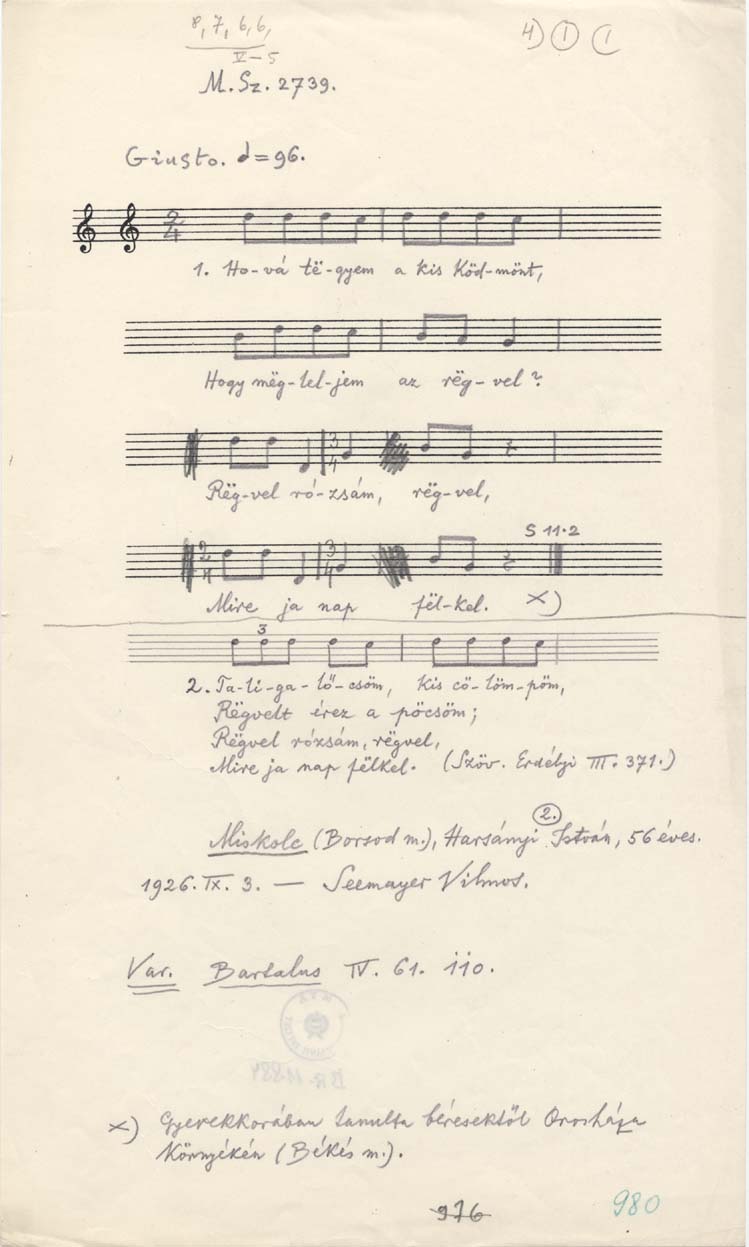 8, 7, 6, 6,
V–5
4) 1 (
M. Sz. 2739.
Giusto. d=96.
2
4
1. Ho-vá të-gyem a kis köd-mönt,
Hogy mëg-lel-jem az rëg-vel?
3
4
Rëg-vel ró-zsám, rëg-vel,
S 11·2
2
4
3
4
Mire ja nap fël-kel. x)
3
2. Ta-li-ga-lő-csöm, kis cö-löm-pöm,
Rëgvelt érez a pöcsöm;
Rëgvel rózsám, rëgvel,
Mire ja nap fëlkel. (Szöv. Erdélyi III. 371.)
2.
Miskolc (Borsod m.), Harsányi István, 56 éves.
1926. IX. 3. — Seemayer Vilmos.
Var. Bartalus IV. 61. 110.
x) Gyerekkorában tanulta béresektől Orosháza
környékén (Békés m.).
976
980